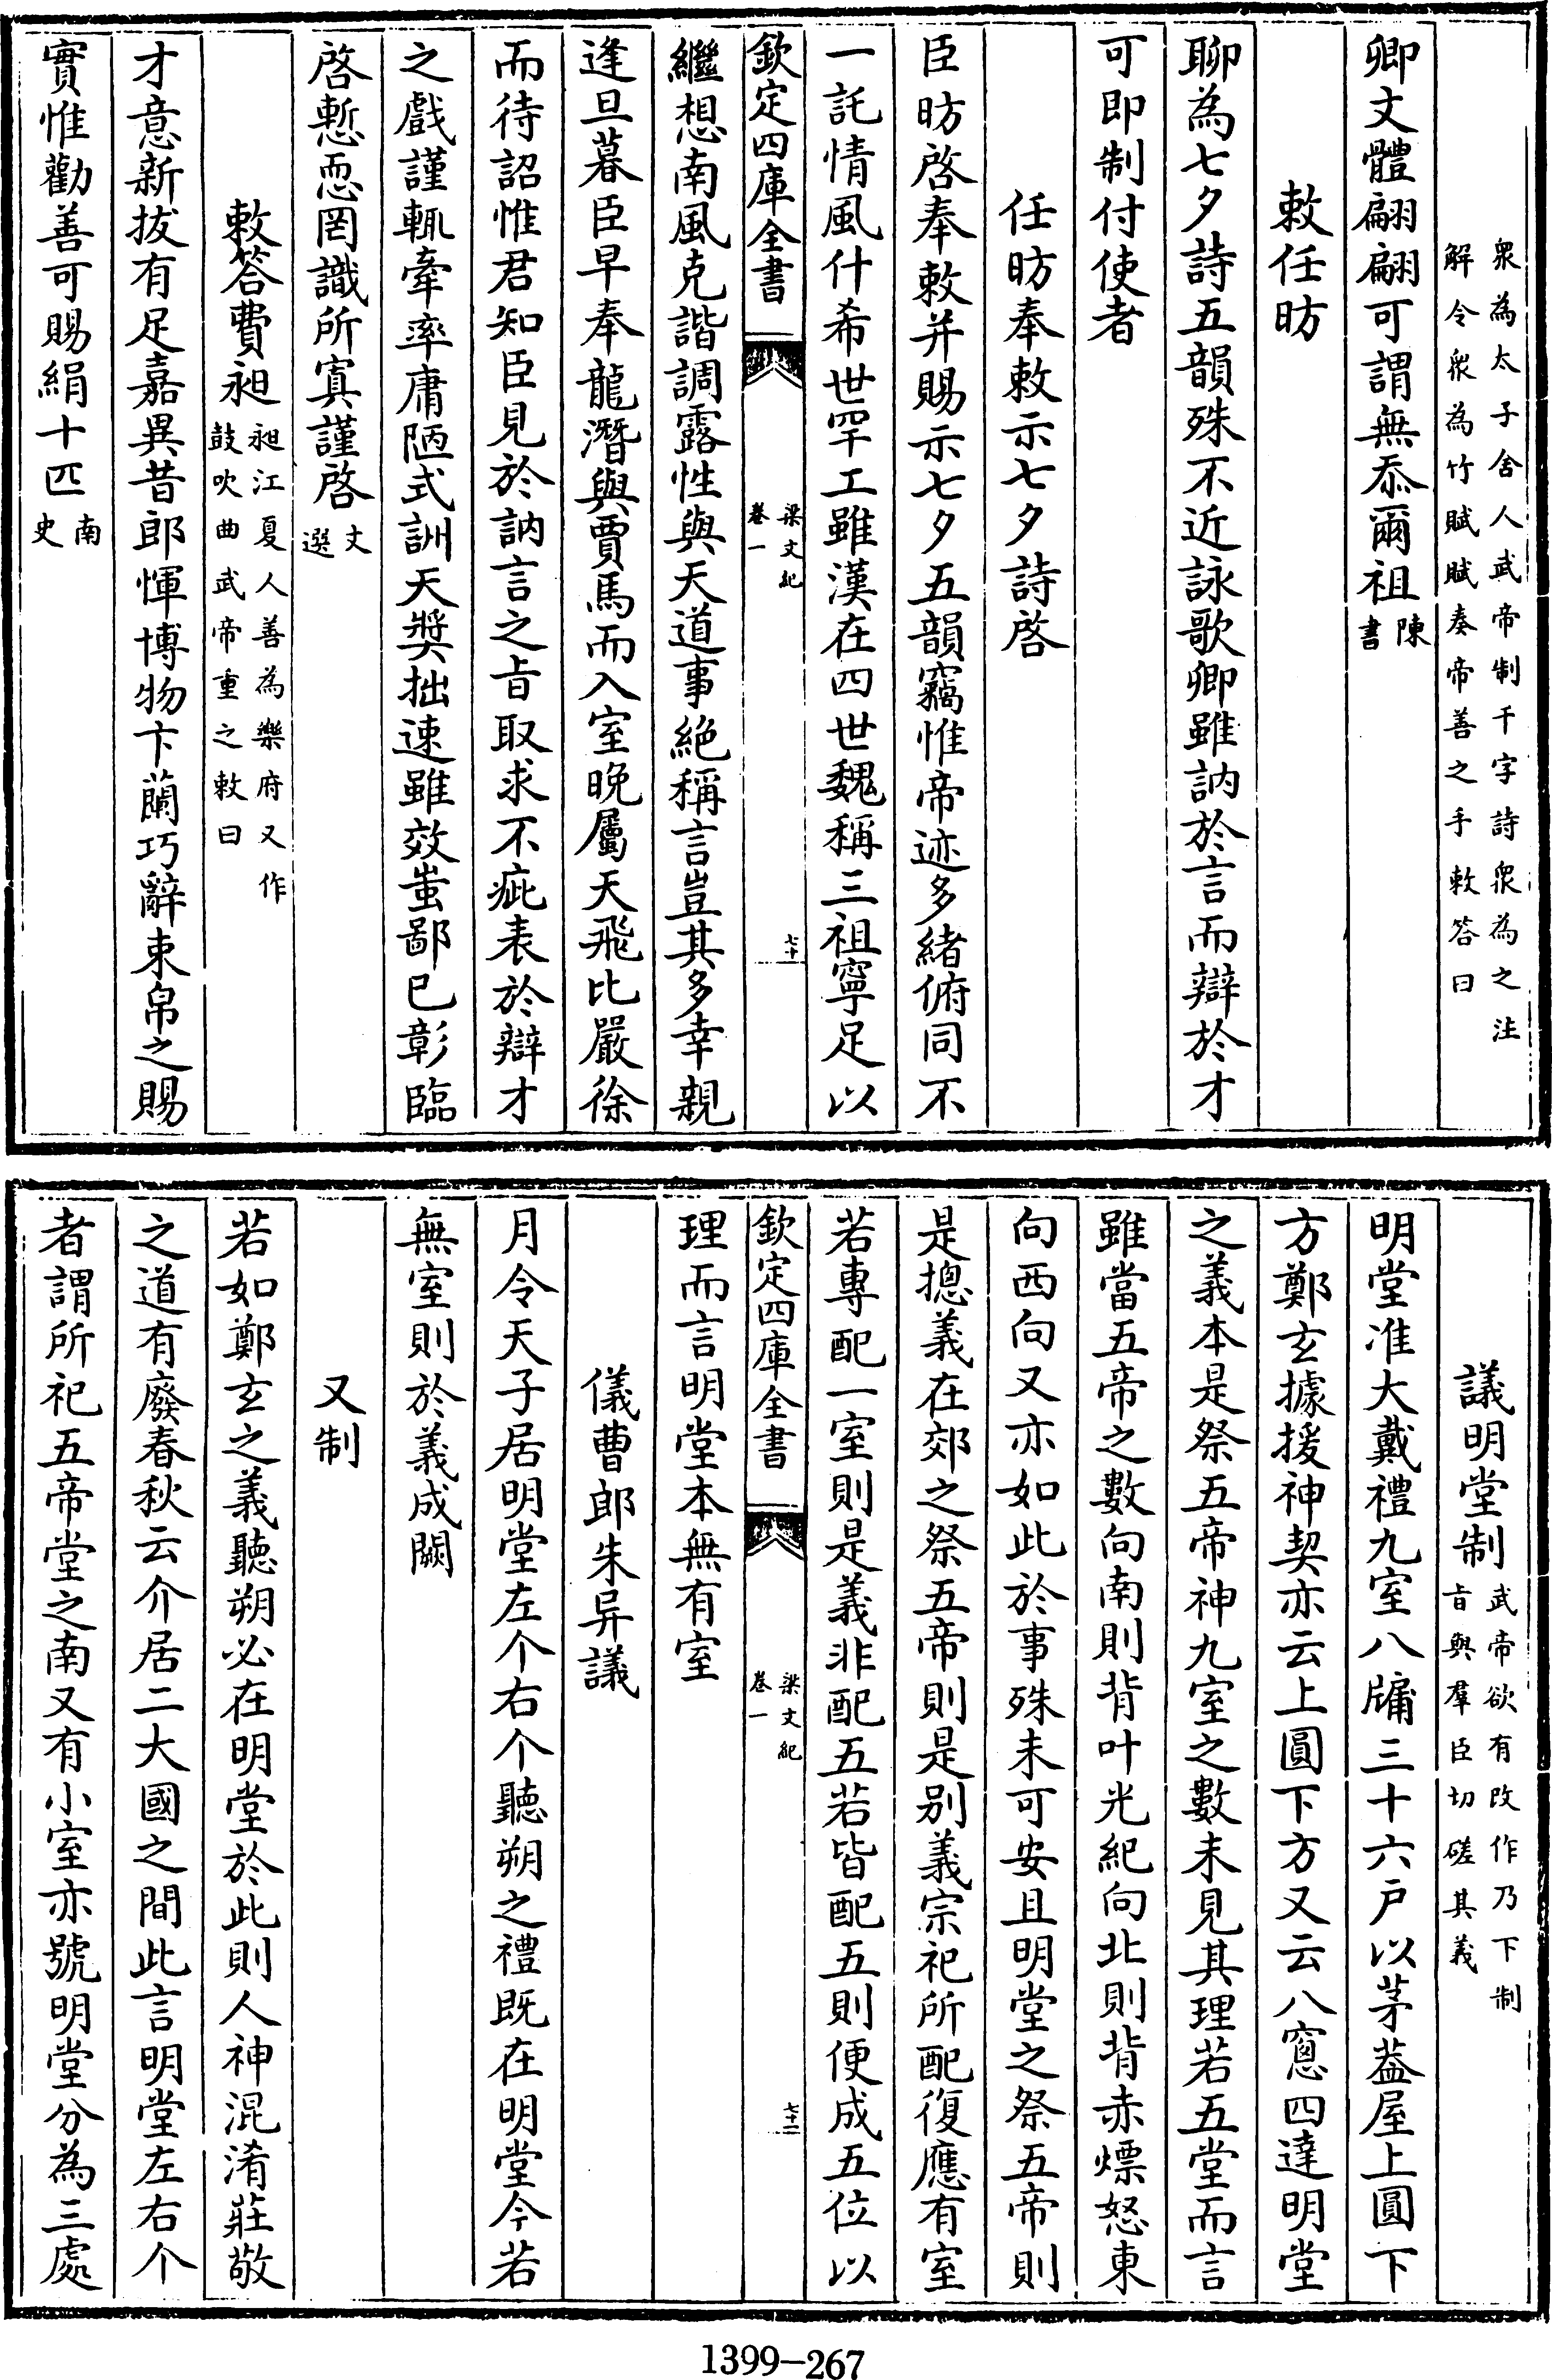 衆為太子舍人武帝制千字詩衆為之注
解令衆為竹賦賦奏帝善之手敕答曰
卿文體翩翩可謂無忝爾祖陳書
敕任昉
聊為七夕詩五韻殊不近詠歌卿雖訥於言而辯於才
可即制付使者
任昉奉敕示七夕詩啓
臣昉啓奉敕并賜示七夕五韻竊惟帝迹多緒俯同不
一託情風什希世罕工雖漢在四世魏稱三祖寧足以
欽定四庫全書
梁文紀
卷一
七十
繼想南風克諧調露性與天道事絶稱言豈其多幸親
逢旦暮臣早奉龍潛與賈馬而入室晚屬天飛比嚴徐
而待詔惟君知臣見於訥言之㫖取求不疵表於辯才
之戲謹輒牽率庸陋式訓天奬拙速雖效蚩鄙已彰臨
啓慙恧罔識所寘謹啓文選
敕答費昶昶江夏人善為樂府又作
鼓吹曲武帝重之敕曰
才意新拔有足嘉異昔郎惲博物卞蘭巧辭束帛之賜
實惟勸善可賜絹十匹南史
議明堂制武帝欲有改作乃下制
㫖與羣臣切磋其義
明堂准大戴禮九室八牖三十六户以茅葢屋上圓下
方鄭玄據援神契亦云上圓下方又云八窻四達明堂
之義本是祭五帝神九室之數未見其理若五堂而言
雖當五帝之數向南則背叶光紀向北則背赤熛怒東
向西向又亦如此於事殊未可安且明堂之祭五帝則
是摠義在郊之祭五帝則是别義宗祀所配復應有室
若專配一室則是義非配五若皆配五則便成五位以
欽定四庫全書
梁文紀
卷一
七十一
理而言明堂本無有室
儀曹郎朱异議
月令天子居明堂左个右个聽朔之禮既在明堂今若
無室則於義成闕
又制
若如鄭玄之義聽朔必在明堂於此則人神混淆莊敬
之道有廢春秋云介居二大國之間此言明堂左右个
者謂所祀五帝堂之南又有小室亦號明堂分為三處
1399-267